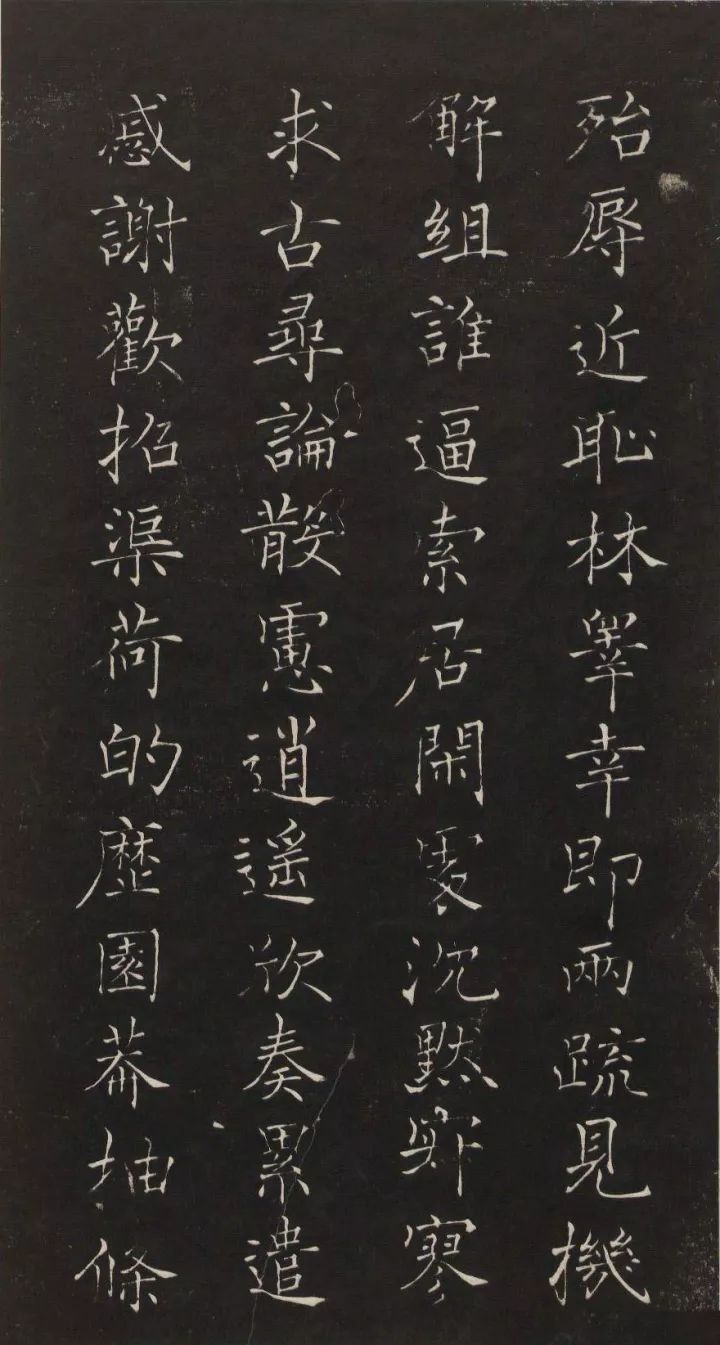 殆辱近恥林皋幸即兩疏見機
解組誰逼索居閑處沈默寂寥
求古尋論散慮逍遙欣奏累遣
慼謝歡招渠荷的歷園莽抽條